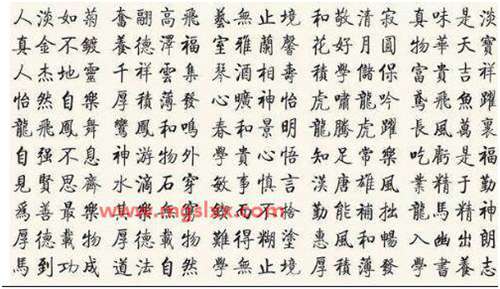 人淡如菊 奮翮高飛 藝無止境 和敬清寂 真味是淡
真金不鍍 養德澤福 室雅蘭馨 花好月圓 物華天寶
人杰地靈 千祥雲集 琴酒相壽 積學儲保 富貴吉祥
怡然自樂 厚積薄發 心曠神怡 虎嘯龍吟 鳶飛魚躍
龍飛鳳舞 鸞鳳和鳴 春和景明 龍騰虎躍 長風萬裏
自强不息 神游物外 學貴心悟 知足常樂 吃虧是福
見賢思齊 水滴石穿 敏事慎言 漢唐雄風 業精于勤
爲善最樂 勤能補拙 龍馬精神
www.mgslsx.com
厚德載物 難得糊塗 惠風和暢 入幽出朗
馬到功成 道法自然 學無止境 厚積薄發 學書養志